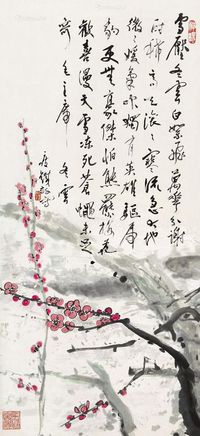 雪壓冬雲白絮飛萬華紛謝
一時稀高天滾滾寒流急大地
微微暖氣吹獨有英雄驅虎
豹更無豪傑怕熊羆梅花
歡喜漫天雪凍死蒼蠅未足
奇毛主席 冬雲